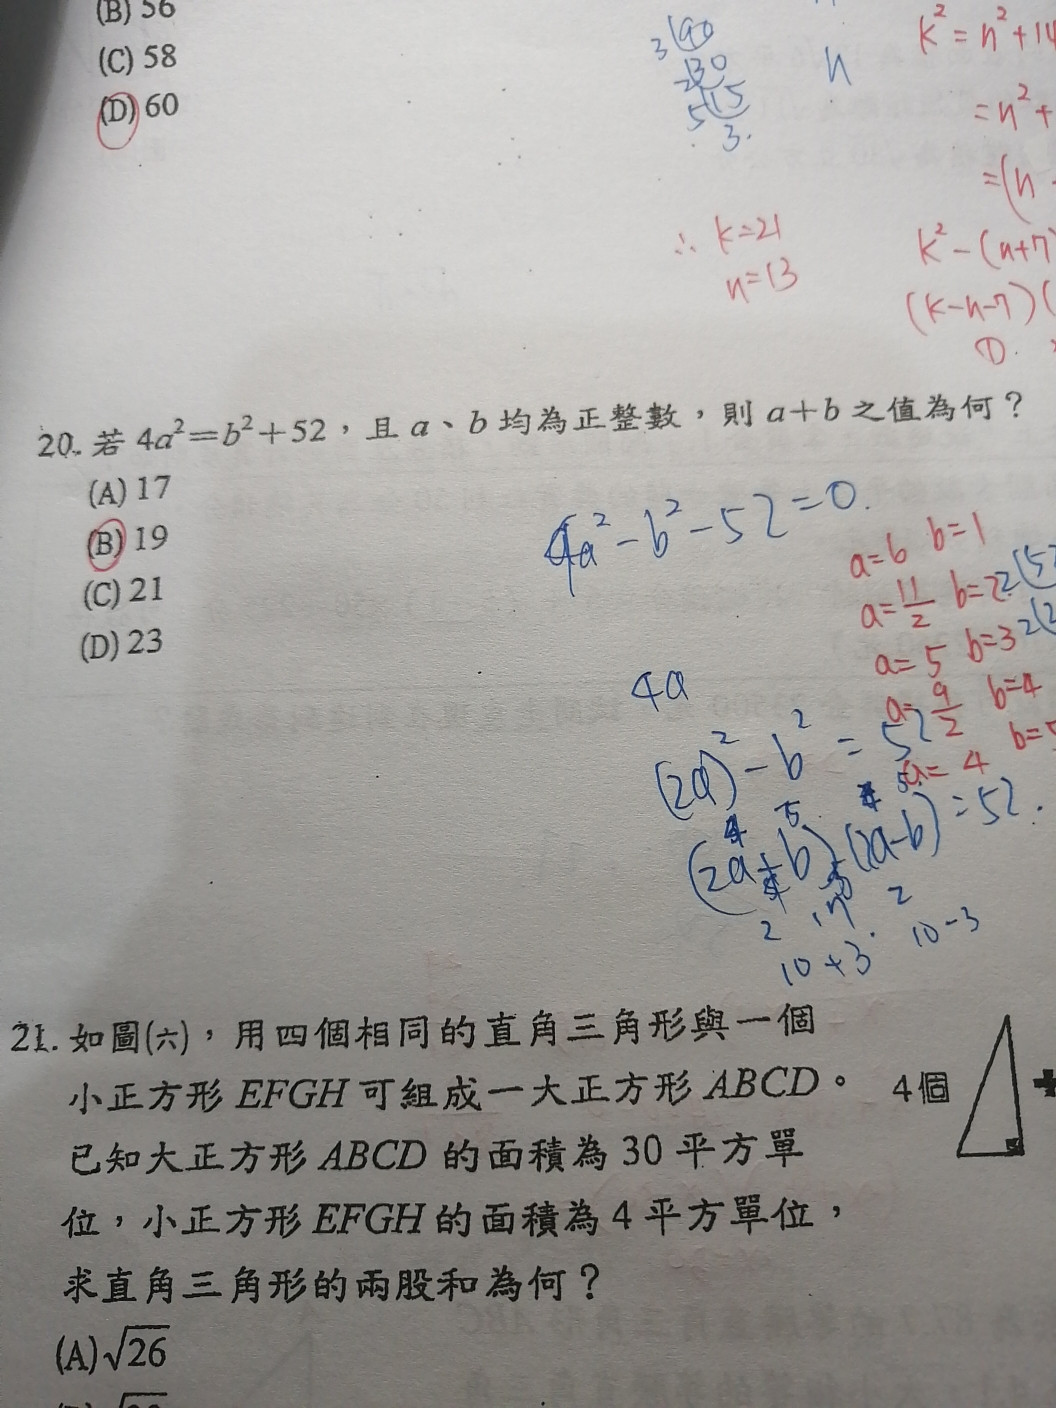 (B) 56
(C) 58
(D) 60
k²=n²+14
=n²+
=(n
∴ k=21
n=13
k²-(n+7)
(k-n-7)(
20. 若 4a²=b²+52，且 a、b 均為正整數，則 a+b 之值為何？
(A) 17
(B) 19
(C) 21
(D) 23
4a²-b²-52=0.
a=6 b=1
a=11/2 b=2
a=5 b=3
a=9/2 b=4
a=4 b=5
4a
(2a)²-b²=52
(2a+b)(2a-b)=52.
10+3. 10-3
21. 如圖(六)，用四個相同的直角三角形與一個
小正方形 EFGH 可組成一大正方形 ABCD。
4個
已知大正方形 ABCD 的面積為 30 平方單
位，小正方形 EFGH 的面積為 4 平方單位，
求直角三角形的兩股和為何？
(A) √26